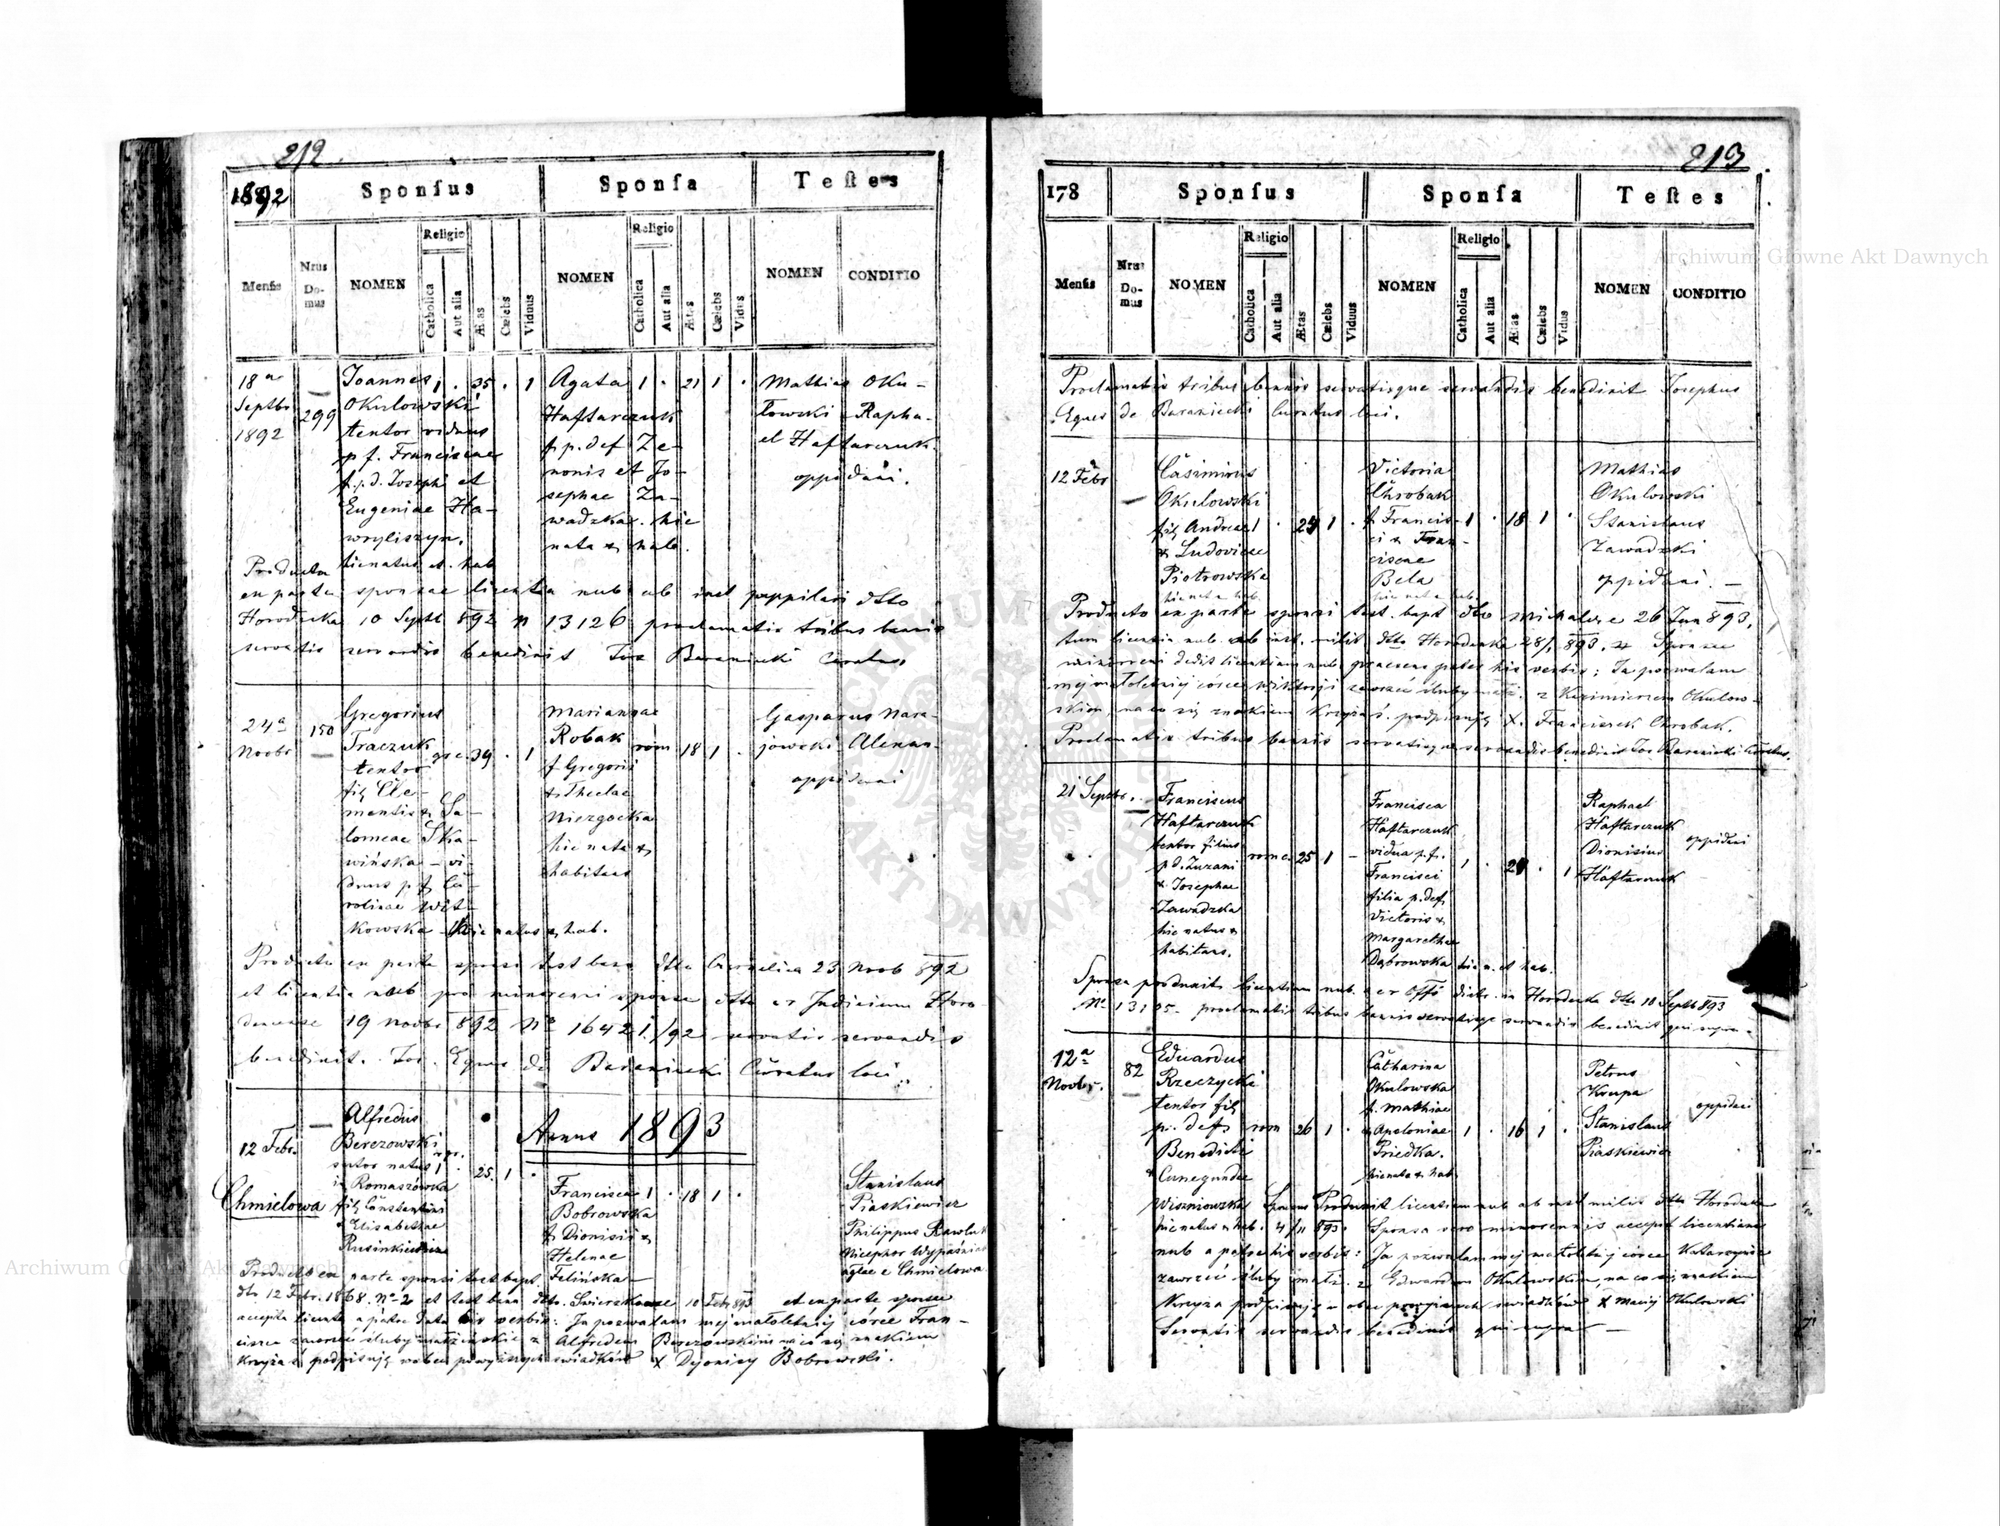 212
1892
Sponsus
Sponsa
Testes
Mensis
Nrus Domus
NOMEN
Religio
Catholica
Aut alia
Ætas
Cælebs
Viduus
NOMEN
Religio
Catholica
Aut alia
Ætas
Cælebs
Vidua
NOMEN
CONDITIO
18a Septbr 1892
299
Joannes
Okulowski
tentor viduus
p f. Franciscae
f. p. d. Josephi et
Eugeniae Ha-
wryliszyn.
hic natus et hab
1 . 35 . 1
Agata
Haftarczuk
f. p. def Ze-
nonis et Jo-
sephae Za-
wadzka. hic
nata & hab.
1 . 21 1 .
Mathias Oku-
łowski Rapha-
el Haftarczuk
oppidani.
Producta
ex parte sponsae licentia nub ab inst puppilari dtto
Horodenka 10 Septb 892 N 13126 proclamatis tribus bannis
servatis servandis benedixit Jos Baraniecki Curatus
24a Novbr
150
Gregorius
Traczuk
tentor
fil Cle-
mentis & Sa-
lomeae Ska-
wińska - vi-
duus p f Ca-
rolinae Wit-
kowska - hic natus & hab.
gr c. 39 . 1
Mariannae
Robak
f Gregorii
& Theclae
Niezgocka
hic nata &
habitans
rom 18 1 .
Gasparus Nara-
jowski Alexan-
oppidani
Producta ex parte sponsi test bann dtto Czernelica 23 Novb 892
et licentia nub pro minorenni sponsa dtto ex Judicium Horo-
dencense 19 Novbr 892 No 16421/92 servatis servandis
benedixit. Jos. Eques de Baraniecki Curatus loci.
Annus 1893
12 Febr.
Chmielowa
Alfredus
Berezowski
sutor natus
in Romaszówka
fil Constantini
& Elisabethae
Rusinkiewicz
1 . 25 1 .
Francisca
Bobrowska
f Dionisii &
Helenae
Felińska
1 . 18 1 .
Stanislaus
Piaskiewicz
Philippus Rawluk
Nicephor Wypaśniak
agłae e Chmielowa
Producto ex parte sponsi test bapt
dto 12 Febr. 1868. No 2 et test bann dtto. Swierzkowce 10 Febr 893 et ex parte sponsae
accepta licentia a patre data his verbis: Ja pozwalam mej małoletniej córce Fran-
cisce zawrzeć śluby małżeńskie z Alfredem Berezowskim na co się znakiem
Krzyża ś podpisuję wobec powyższych świadków X Dyonizy Bobrowski.
213
178
Sponsus
Sponsa
Testes
Mensis
Nrus Domus
NOMEN
Religio
Catholica
Aut alia
Ætas
Cælebs
Viduus
NOMEN
Religio
Catholica
Aut alia
Ætas
Cælebs
Vidus
NOMEN
CONDITIO
Proclamatis tribus bannis servatisque servandis benedixit Josephus
Eques de Baraniecki Curatus loci.
12 Febr
Casimirus
Okulowski
fil Andreae
& Ludovicae
Piotrowska
hic nat & hab.
1 . 24 1 .
Victoria
Chrobak
f Francis-
ci & Fran-
ciscae
Bela
hic nata & hab.
1 . 18 1 .
Mathias
Okulowski
Stanislaus
Zawadzki
oppidani.
Producto ex parte sponsi test. bapt dto Michalcze 26 Jan 893,
tum licentia nub. ab inst. milit dtto Horodenka 28/1 893. & Sponsae
minorreni dedit licentiam nub. praesens pater his verbis: Ja pozwalam
mej małoletniej córce Wiktorji zawrzeć śluby małż. z Kazimierzem Okulow-
skim, na co się znakiem Krzyża ś. podpisuję X. Franciszek Chrobak.
Proclamatis tribus bannis servatisque servandis benedixit Jos Baraniecki Curatus.
21 Septbr.
Franciscus
Haftarczuk
tentor filius
p d. Zuzani
& Josephae
Zawadzka
hic natus &
habitans.
rom c. 25 1 -
Francisca
Haftarczuk
vidua p. f.
Francisci
filia p. def
Victoris &
Margarethae
Dąbrowska hic n. et hab.
1 . 24 . 1
Raphael
Haftarczuk
Dionisius
Haftarczuk
oppidani
Sponsa produxit licentiam nub. ex Offo distr. in Horodenka dtto 10 Septb 893
No 13105. proclamatis tribus bannis servatisque servandis benedixit qui supra -
12a Novbr.
82
Eduardus
Rzeczycki
tentor fil
p. def
Benedicti
&
Cunegundae
Wiszniowska
hic natus & hab.
rom 26 1 .
Catharina
Okulowska
f. Mathiae
& Apoloniae
Priedka.
hic nata & hab
1 . 16 1 .
Petrus
Krupa
Stanislaus
Piaskiewicz
oppidani
Sponsus Produxit licentiam nub ab inst milit dtto Horodenka
4/11 893. Sponsa vero minorennis accepit licentiam
nub a patre his verbis: Ja pozwalam mej małoletniej córce Katarzynie
zawrzeć śluby małż. z Edwardem Okulowskim, na co się znakiem
Krzyża podpisuję obec powyższych świadków X Maciej Okulowski
Servatis servandis benedixit qui supra -
Archiwum Główne Akt Dawnych
Archiwum Główne Akt Dawnych